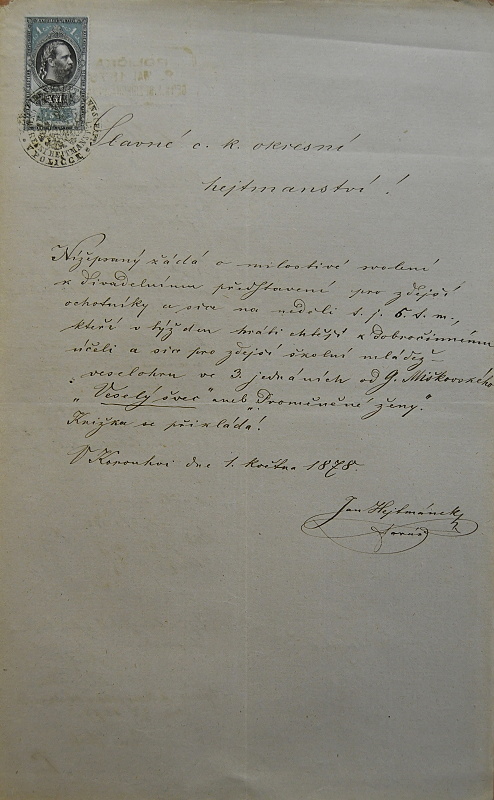 Slavné c. k. okresní
hejtmanství!
Nížepsaný žádá o milostivé svolení
k divadelnímu představení pro zdejší
ochotníky a sice na neděli t. j. 5 t. m.,
kteří v týž den hráti chtějí k dobročinnému
účeli a sice pro zdejší školní mládež
veselohru ve 3. jednáních od G. Miškovského
„Veselý švec" aneb „Proměněné ženy."
Knížka se přikládá!
V Korouhvi dne 1. května 1878.
Jan Hejtmánek